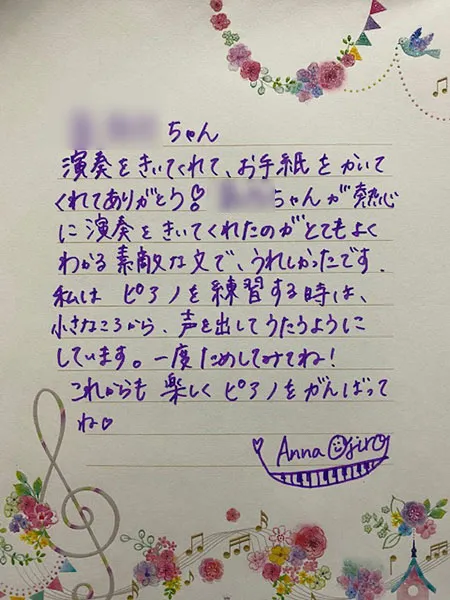 ちゃん
演奏をきいてくれて、お手紙をかいて
くれてありがとう! ちゃんが熱心
に演奏をきいてくれたのがとてもよく
わかる素敵な文で、うれしかったです.
私は ピアノを練習する時は、
小さなころから、声を出してうたうように
しています。一度ためしてみてね!
これからも楽しくピアノをがんばって
ね♡
♡ Anna Ojiro